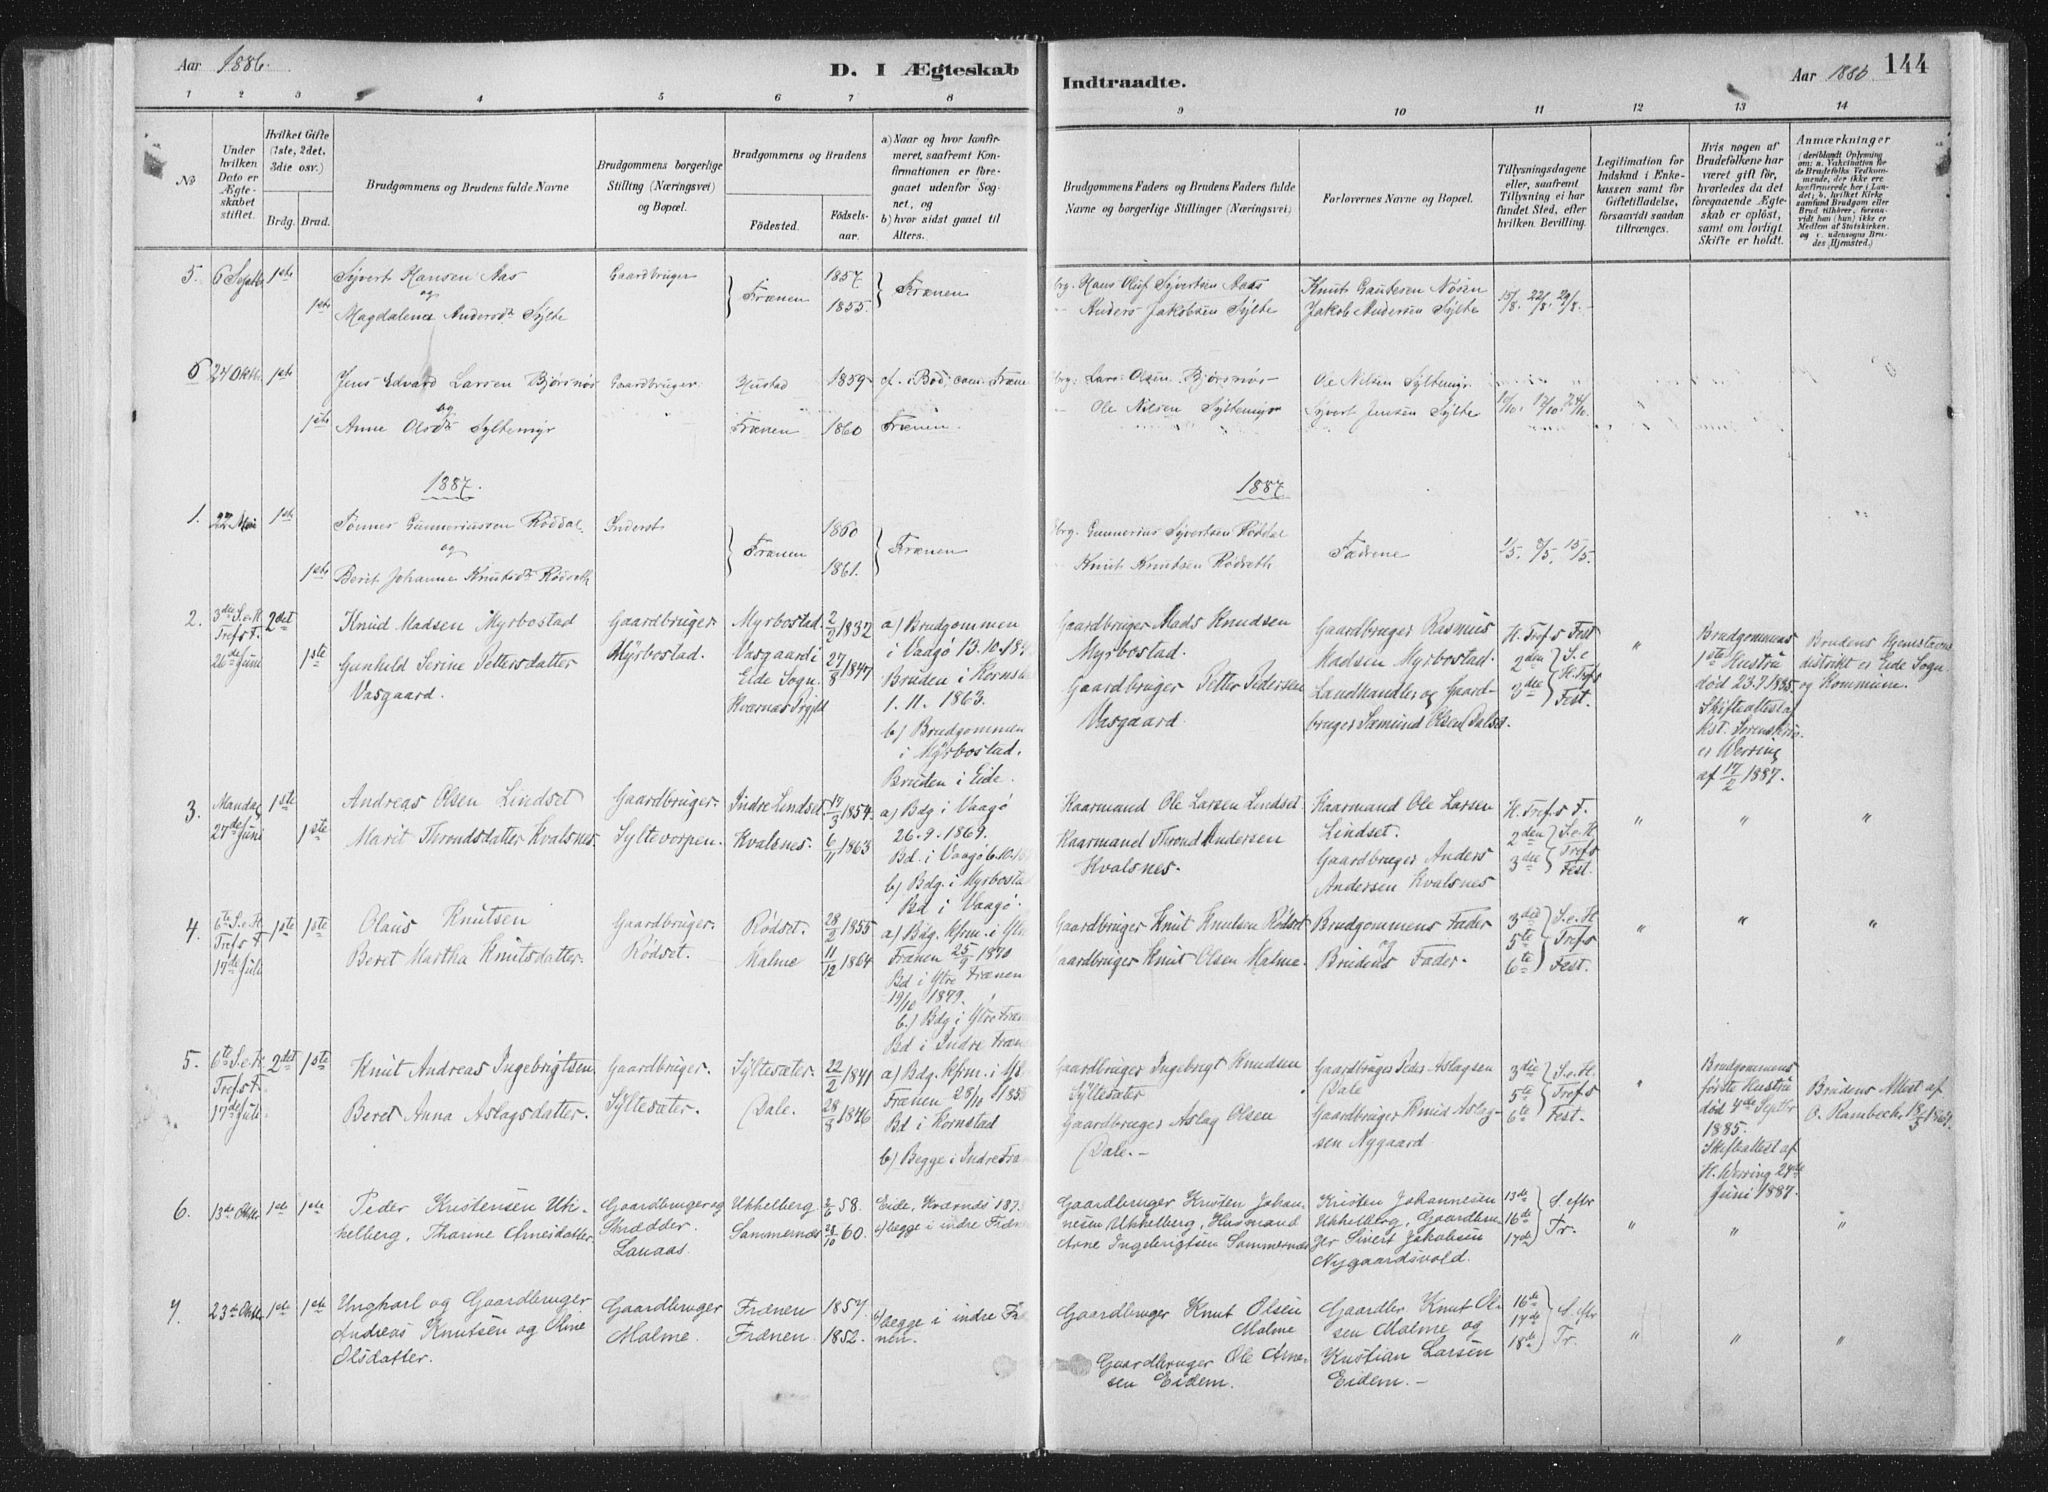 Aar 1886.
D. I Ægteskab Indtraadte.
Aar 1886
144
1 2 3 4 5 6 7 8 9 10 11 12 13 14
No
Under hvilken Dato er Ægteskabet stiftet.
Hvilket Gifte (1ste, 2det, 3die osv.)
Brdg. Brud.
Brudgommens og Brudens fulde Navne
Brudgommens borgerlige Stilling (Næringsvei) og Bopæl.
Brudgommens og Brudens
Fødested. Fødselsaar.
a) Naar og hvor konfirmeret, saafremt Konfirmationen er foregaaet udenfor Sognet, og
b) hvor sidst gaaet til Alters.
Brudgommens Faders og Brudens Faders fulde Navne og borgerlige Stillinger (Næringsvei)
Forlovernes Navne og Bopæl.
Tillysningsdagene eller, saafremt Tillysning ei har fundet Sted, efter hvilken Bevilling.
Legitimation for Indskud i Enkekassen samt for Giftetilladelse, forsaavidt saadan tiltrænges.
Hvis nogen af Brudefolkene har været gift før, hvorledes da det foregaaende Ægteskab er opløst, samt om lovligt Skifte er holdt.
Anmærkninger
(deriblandt Oplysning om: a. Vakcination for de Brudefolks Vedkommende, der ikke ere konfirmerede her i Landet, b. hvilket Kirkesamfund Brudgom eller Brud tilhører, forsaavidt han (hun) ikke er Medlem af Statskirken, og c. udensogns Brudes Hjemsted.)
5. 6 Septbr 1ste Sÿvert Hansen Aas Gaardbruger Frænen 1857 Frænen brg. Hans Oluf Sÿvertsen Aas Knut Gautesen Nøsen 15/8. 22/8. 29/8.
og
1ste Magdalene Andersdr Sÿlte 1855. " Anders Jakobsen Sÿlte Jakob Andersen Sÿlte
6 24 Oktbr. 1ste Jens Edvard Larsen Bjørsnøs Gaardbruger Hustad 1859 cf. i Bod; com. Fræne brg: Lars Olsen Bjørsnøs Ole Nilsen Sÿltemÿr
og
1ste Anne Olsdr Sÿltemÿr Frænen 1860 Frænen. " Ole Nilsen Sÿltemÿr Sÿvert Jensen Sÿlte 10/10. 17/10. 24/10.
1887.
1887
1. 22 Mai 1ste Tønnes Gunneriussen Røddal Inderst Frænen 1860 Frænen brg. Gunnerius Sÿvertsen Røddal Fædrene 1/5. 8/5. 15/5.
og
1ste Berit Johanne Knutsdr Rødseth 1861. Knut Knudsen Rødseth
2. 3die S. e. H. Tref. s F. 26de Juni 2det Knud Madsen Myrbostad Gaardbruger Myrbostad. 2/2 1832 a) Brudgommen
1ste Gunhild Serine Pettersdatter Vasgaard. Mÿrbostad. Vasgaard i Eide Sogn. Kværnæs Prgjld 27/8 1847 i Vaagø 13.10.184
Bruden i Kornsta
1. 11. 1863.
b) Brudgommen i Mÿrbostad.
Bruden i Eide.
Gaardbruger Mads Knudsen Myrbostad.
Gaardbruger Petter Pedersen Vasgaard.
Gaardbruger Rasmus Madsen Myrbostad.
Landhandler og Gaardbruger Sæmund Olsen Dalset.
H. Tref. s Fest
2den 3die S. e. H. Trefs Fest.
"
Brudgommens 1ste Hustru død 23.7 1885 Skifteattest af kst. Sorenskriver Werring af 17/2 1887.
Brudens Hjemstavnsdistrikt er Eide Sogn og Kommune.
3. Mandag 27de Juni 1ste Andreas Olsen Lindset Gaardbruger. Indre Lindset. 17/3 1854. a) Bdg i Vaagø
1ste Marit Throndsdatter Kvalsnes. Syltevorpen. Kvalsnes. 6/11 1863 26. 9. 1869.
Bd. i Vaagø 6.10.18
b) Bdg. i Myrbosta
Bd i Vaagø.
Kaarmand Ole Larsen Lindset.
Kaarmand Thrond Andersen Kvalsnes.
Kaarmand Ole Larsen Lindset.
Gaardbruger Anders Andersen Kvalsnes
H. Tref. s F.
2den 3die S. e. H. Trefs Fest.
" " "
4. 6te S. e. H. Tref. s F. 17de Juli 1ste 1ste Olaus Knutsen Gaardbruger. Rødset. 28/2 1855 a) Bdg. kfrm. i Ytre
Beret Martha Knutsdatter. Rødset. Malme 11/12 1864 Frænen 25/9 1870
Bd i Ytre Frænen 19/10 1879.
b.) Bdg i Ytre Fræne
Bd i Indre Fræn
Gaardbruger Knut Knutsen Rødset
Gaardbruger Knut Olsen Malme.
Brudgommens Fader og Brudens Fader.
3die 5te 6te S. e. H. Trefs Fest.
" " "
5. 6te S. e. H. Tref. s F. 17de Juli 2det 1ste Knut Andreas Ingebrigtsen Gaardbruger. Sÿltesæter. 22/2 1841 a) Bdg. kfrm. i
Beret Anna Aslagsdatter. Sÿltesæter. Dale. 28/8 1846 Frænen 28/10 1855
Bd i Kornstad
b) Begge i Indre Fræn
Gaardbruger Ingebrigt Knudsen Sÿltesæter
Gaardbruger Aslag Olsen Dale. -
Gaardbruger Peder Aslagsen Dale
Gaardbruger Knut Aslagsen Nygaard.
3die 5te 6te S. e. H. Trefs Fest.
"
Brudgommens første Hustru død 4de Septbr 1885.
Skifteattest af H. Werring 24de Juni 1887.
Brudens Attest af O. Rambech
6. 13de Oktbr 1ste 1ste Peder Kristensen Ukkelberg, Thorine Arnesdatter. Gaardbruger og Skrædder. Lanaas. Ukkelberg 2/6 58. Sammernæs 23/10 60. Eide, Kværnæs 187
b) begge i indre Fræne
Gaardbruger Kristen Johannesen Ukkelberg, Husmand Arne Ingebrigtsen Sammernæs
Kristen Johannesen Ukkelberg, Gaardbruger Sivert Jakobsen Nygaardsvold.
13de 16de 17de S. efter Tr.
" " "
7. 23de Oktbr 1ste 1ste Ungkarl og Gaardbruger Andreas Knutsen og Olsdatter. Gaardbruger Malme. Frænen 1857. Frænen 1852. b) begge i indre Frænen.
Gaardbruger Knut Olsen Malme
Gaardbruger Ole Arnesen Eidem.
Gaardbr. Knut Olsen Malme og Kristian Larsen Eidem. -
16de 17de 18de S. eftr Tr.
" " "